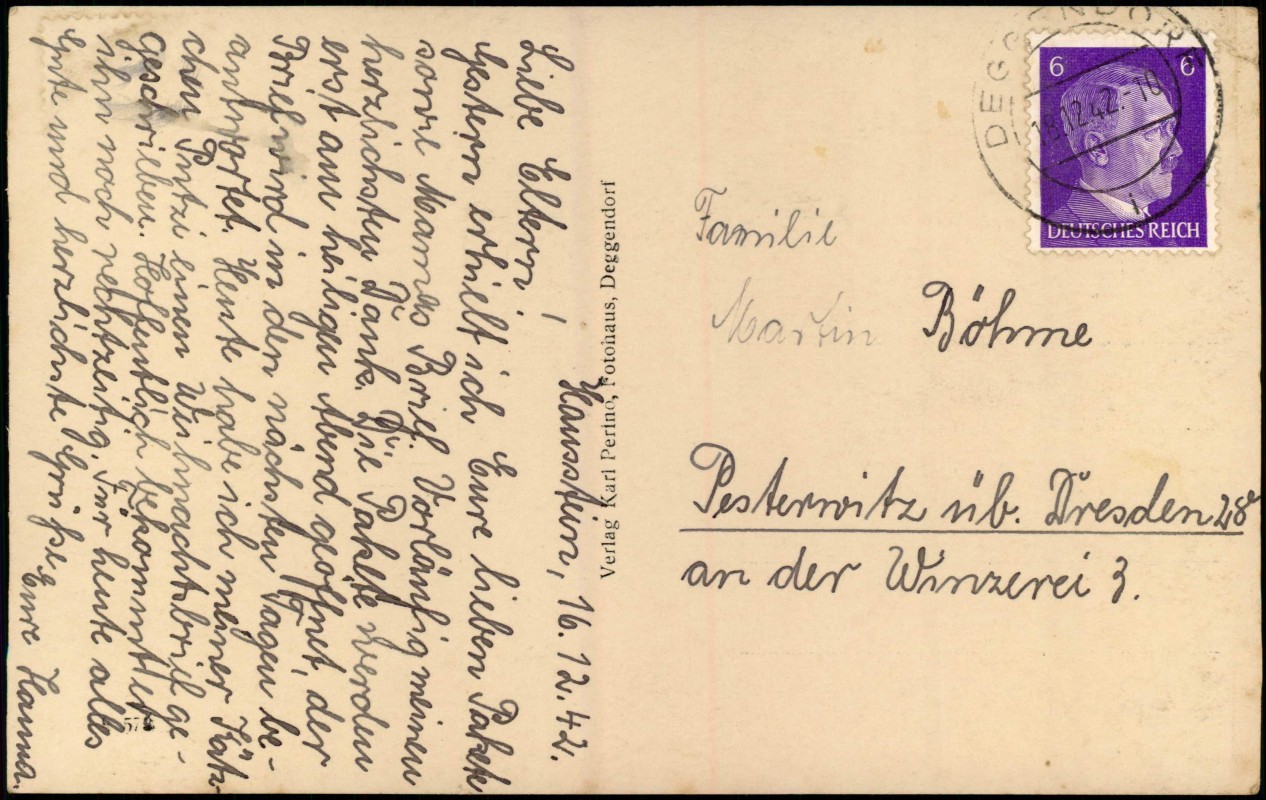 Hausstein, 16.12.42.
Liebe Eltern!
Gestern erhielt ich Eure lieben Pakete
sowie Mamas Brief. Vorläufig meinen
herzlichsten Dank. Die Pakete werden
erst am heiligen Abend geöffnet, der
Brief wird in den nächsten Tagen be-
antwortet. Heute habe ich meiner Kätz-
chen Putzi einen Weihnachtsbrief ge-
geschrieben. Hoffentlich bekommt er
ihn noch rechtzeitig. Für heute alles
Gute und herzlichste Grüße,
Eure Hanna.
578
Verlag Karl Perino, Fotohaus, Deggendorf
DEGGENDORF
18.12.42.-10
1
6 6
DEUTSCHES REICH
Familie
Martin Böhme
Pesterwitz üb. Dresden 28
an der Winzerei 3.